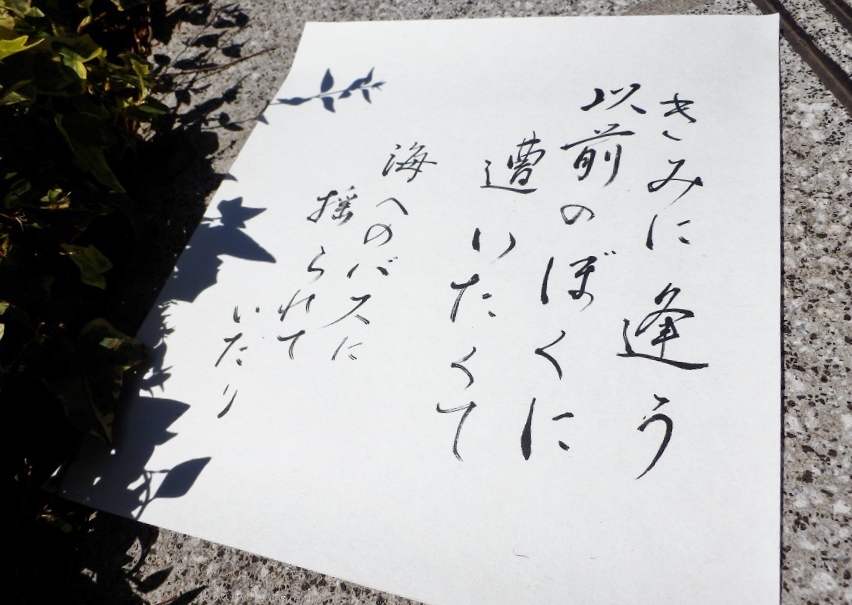 きみに逢う
以前のぼくに
遭いたくて
海へのバスに
揺られて
いたり